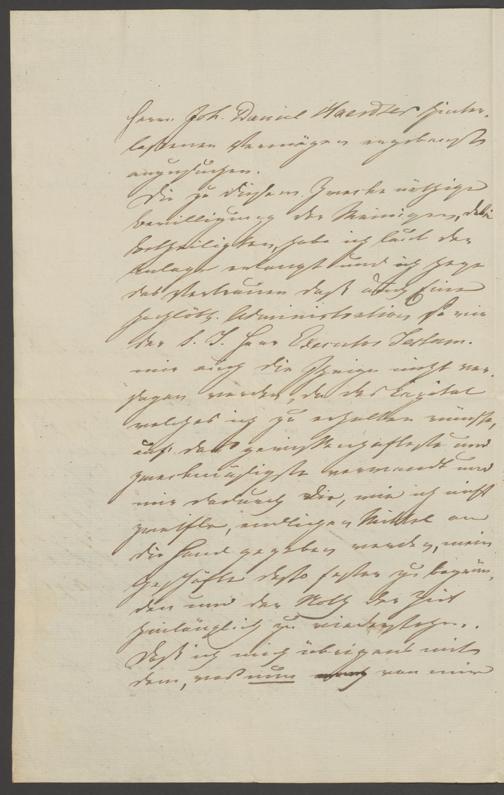 Herrn Joh. Daniel Haendler hinter-
lassenen Vermögen ergebenst
anzusuchen.
Die zu diesem Zwecke nöthige
Bewilligung der Meinigen, dabei
betheiligten, habe ich laut der
Anlage erlangt und ich hege
das Vertrauen daß auch Eine
hochlöbl. Administration so wie
der S. T. Herr Executor Testam.
mir auch die Ihrige nicht ver-
sagen werden, da das Capital
welches ich zu erhalten wünsche,
auf das gewissenhafteste und
zweckmäßigste verwandt und
mir dadurch die, wie ich nicht
zweifle, endlichen Mittel an
die Hand gegeben werden, mein
Geschäft desto fester zu begrün-
den und der Noth der Zeit
hinlänglich zu widerstehen.
Daß ich mich übrigens mit
dem, was nun von mir